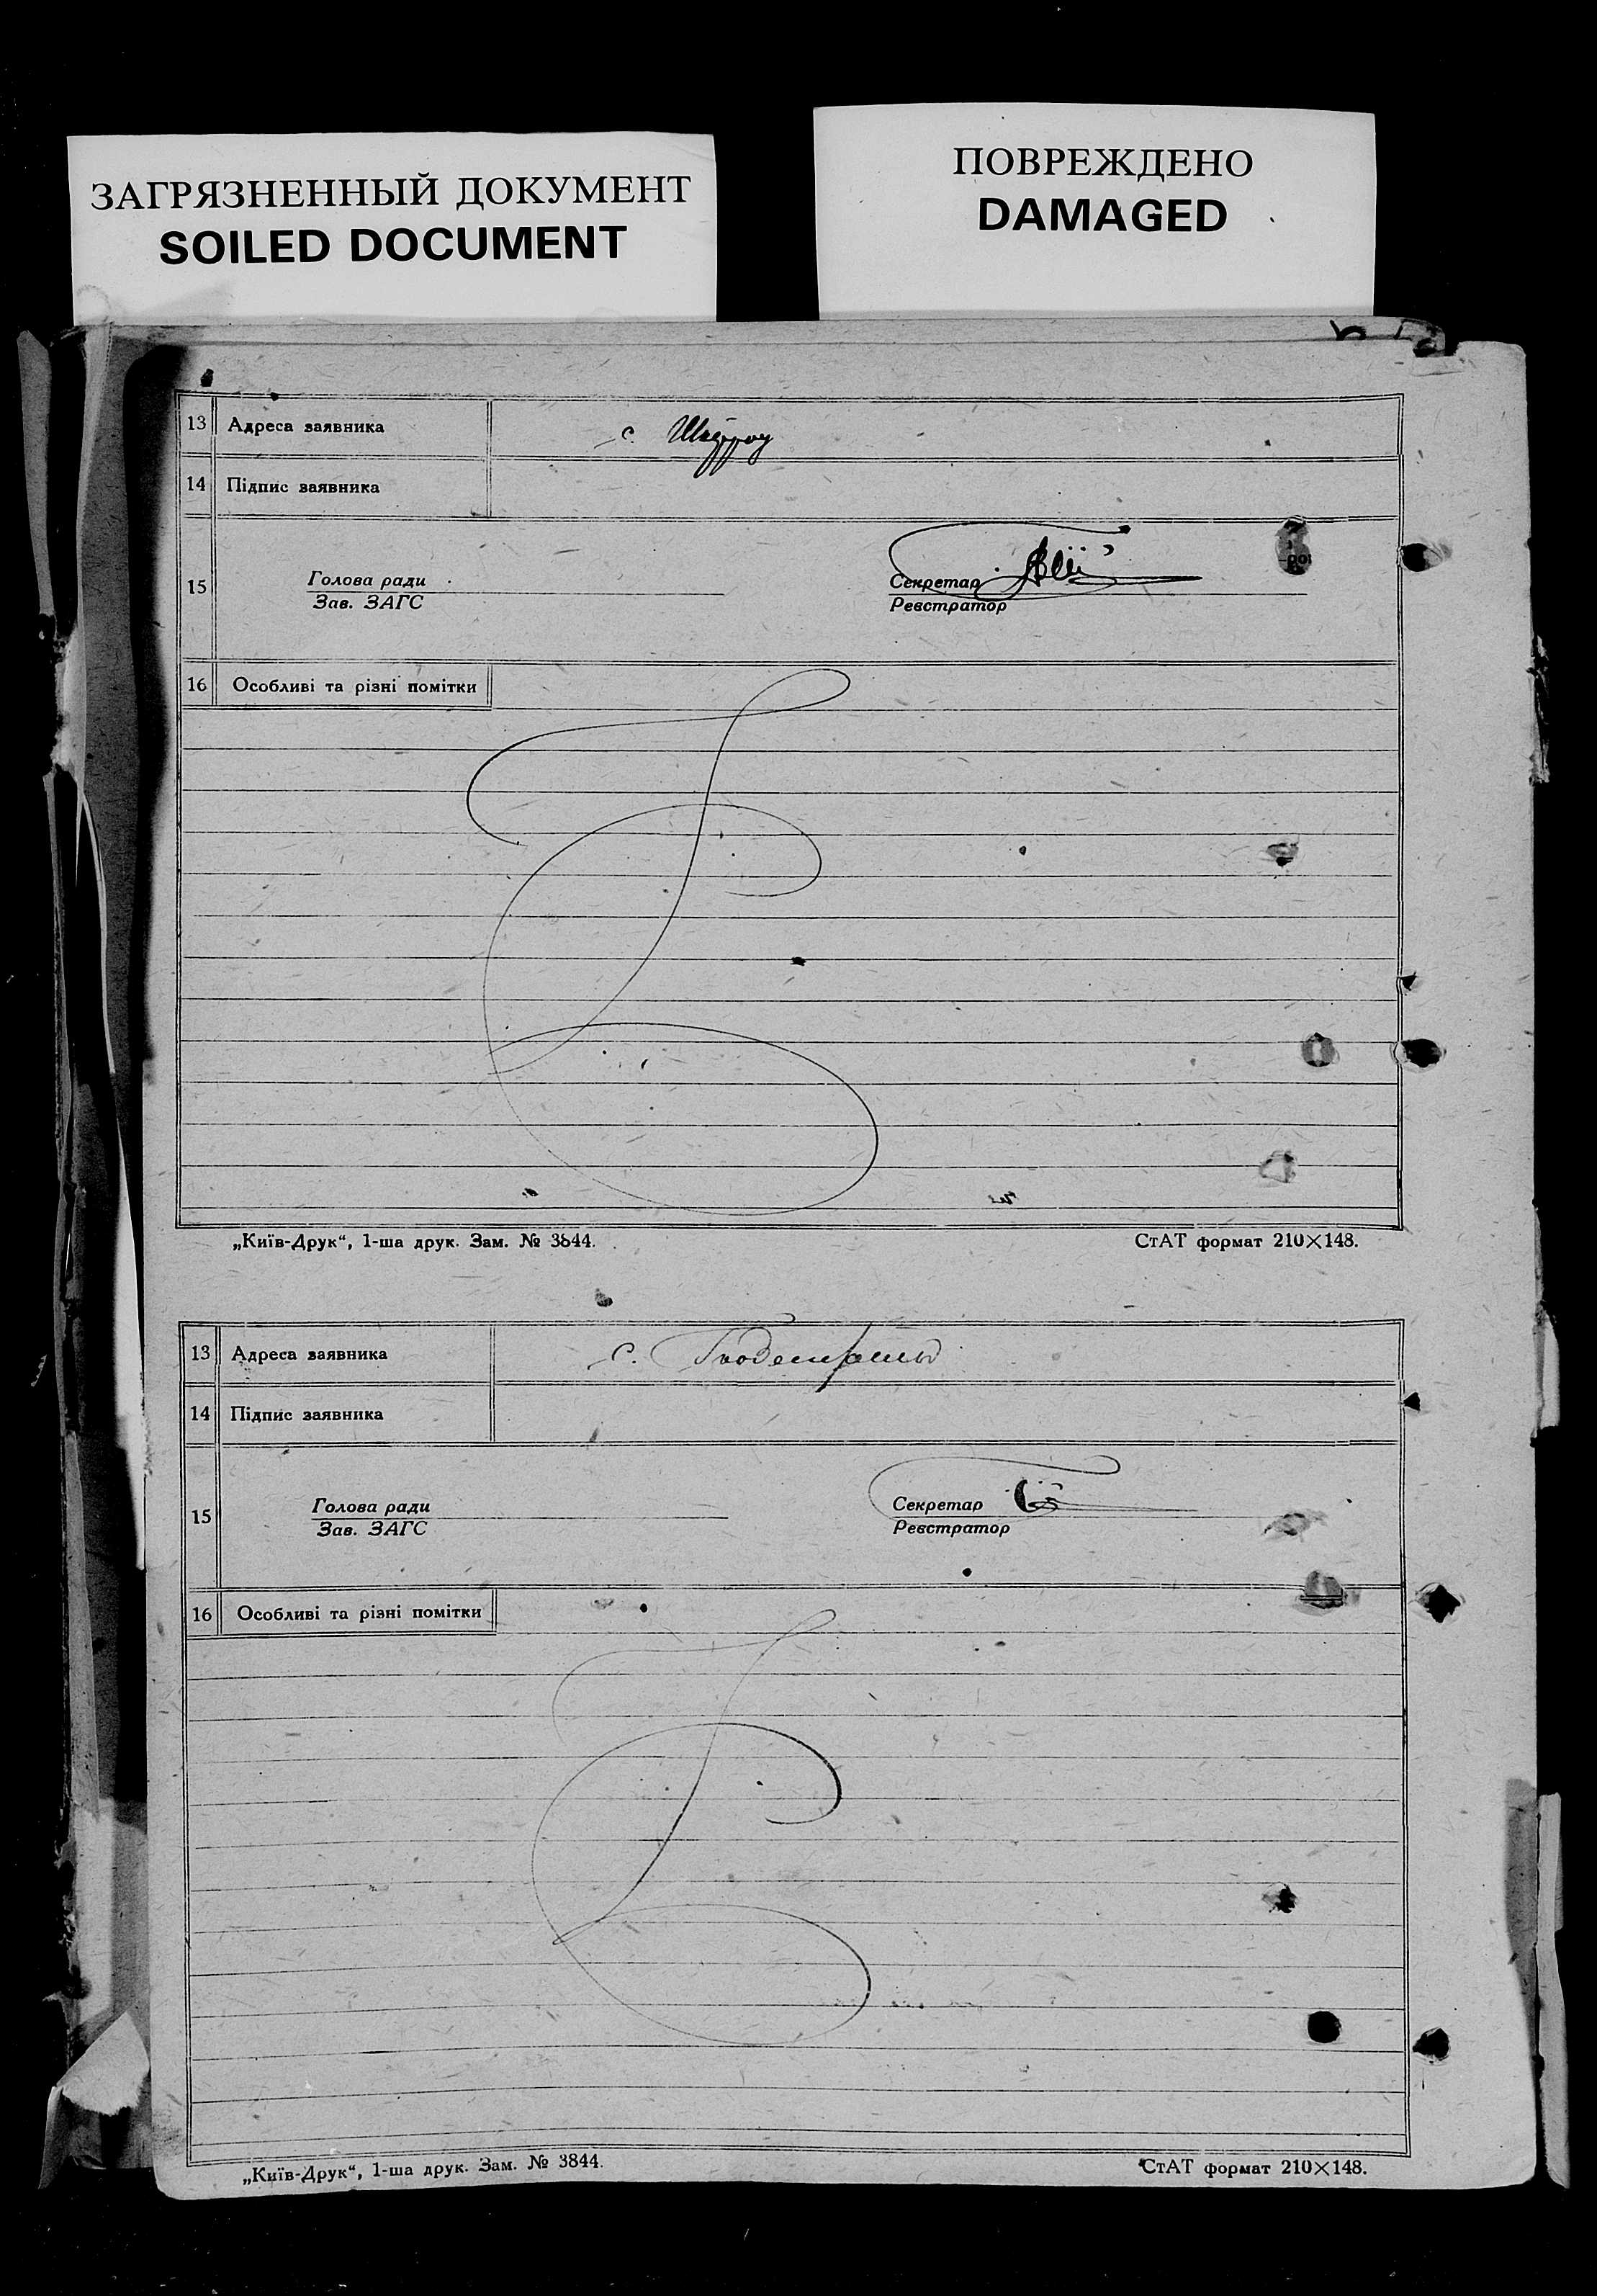 ЗАГРЯЗНЕННЫЙ ДОКУМЕНТ
SOILED DOCUMENT
ПОВРЕЖДЕНО
DAMAGED
13 Адреса заявника с.
14 Підпис заявника
15 Голова ради Секретар
Зав. ЗАГС Реєстратор
16 Особливі та різні помітки
„Київ-Друк“, 1-ша друк. Зам. № 3844. СтАТ формат 210×148.
13 Адреса заявника с.
14 Підпис заявника
15 Голова ради Секретар
Зав. ЗАГС Реєстратор
16 Особливі та різні помітки
„Київ-Друк“, 1-ша друк. Зам. № 3844. СтАТ формат 210×148.